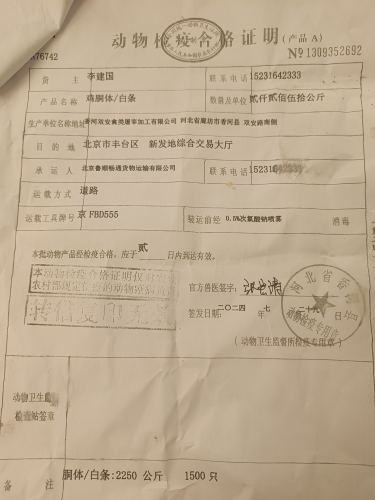 动物检疫合格证明(产品A)
76742
№1309352692
货 主 李建国 联系电话 15231642333
产品名称 鸡胴体/白条 数量及单位 贰仟贰佰伍拾公斤
生产单位名称地址 香河双安禽类屠宰加工有限公司 河北省廊坊市香河县 双安路南侧
目 的 地 北京市丰台区 新发地综合交易大厅
承 运 人 北京鲁顺畅通货物运输有限公司 联系电话 15231642
运载方式 道路
运载工具牌号 京FBD555 装运前经 0.5%次氯酸钠喷雾 消毒
本批动物产品经检疫合格,应于 贰 日内到达有效。
本动物检疫合格证明仅
农村部规定
转借复印无效
官方兽医签字:
签发日期: 二〇二四 七
河北省香河
动物检疫专用章
(动物卫生监督所检疫专用章)
动物卫生
检查站签章
备 注 胴体/白条:2250 公斤 1500 只